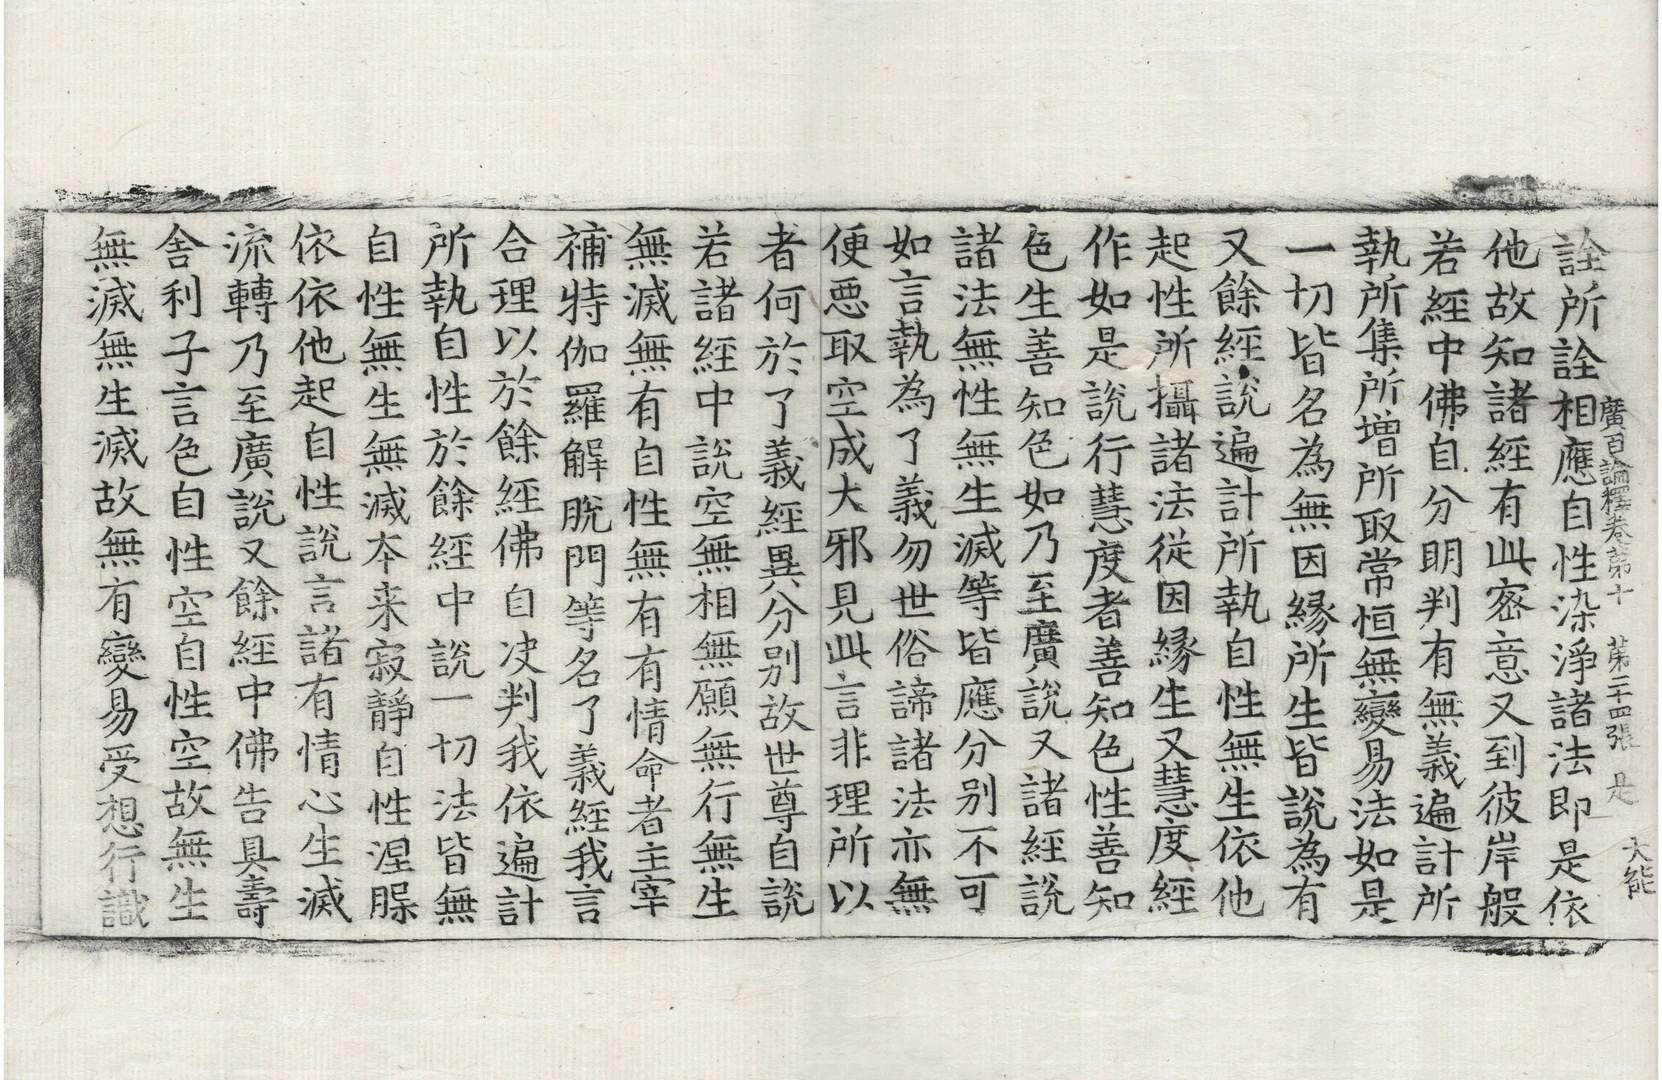 廣百論釋卷第十　第二十四張　是
大能
詮所詮相應自性染淨諸法即是依
他故知諸經有此密意又到彼岸般
若經中佛自分明判有無義遍計所
執所集所增所取常恒無變易法如是
一切皆名為無因緣所生皆說為有
又餘經說遍計所執自性無生依他
起性所攝諸法從因緣生又慧度經
作如是說行慧度者善知色性善知
色生善知色如乃至廣說又諸經說
諸法無性無生滅等皆應分別不可
如言執為了義勿世俗諦諸法亦無
便惡取空成大邪見此言非理所以
者何於了義經異分別故世尊自說
若諸經中說空無相無願無行無生
無滅無有自性無有有情命者主宰
補特伽羅解脫門等名了義經我言
合理以於餘經佛自決判我依遍計
所執自性於餘經中說一切法皆無
自性無生無滅本来寂靜自性涅槃
依依他起自性說言諸有情心生滅
流轉乃至廣說又餘經中佛告具壽
舍利子言色自性空自性空故無生
無滅無生滅故無有變易受想行識